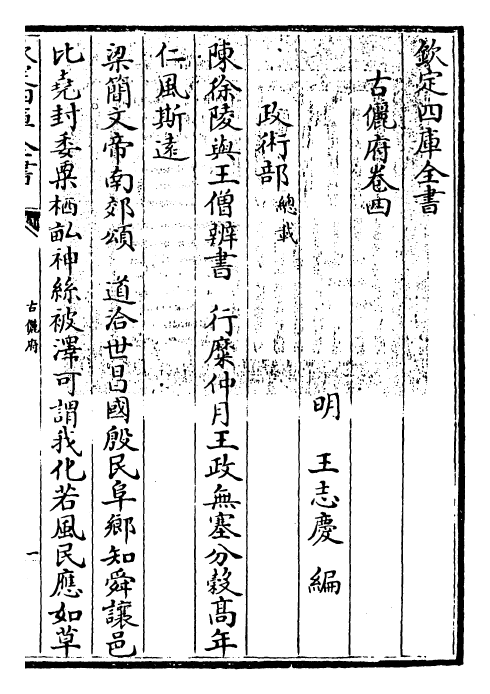 欽定四庫全書
古儷府卷四
明 王志慶 編
政術部 總載
陳徐陵與王僧辨書 行糜仲月王政無塞分穀髙年
仁風斯遠
梁簡文帝南郊頌 道洽世昌國殷民阜鄉知舜讓邑
比堯封委粟栖畆神絲被澤可謂我化若風民應如草
古儷府
一